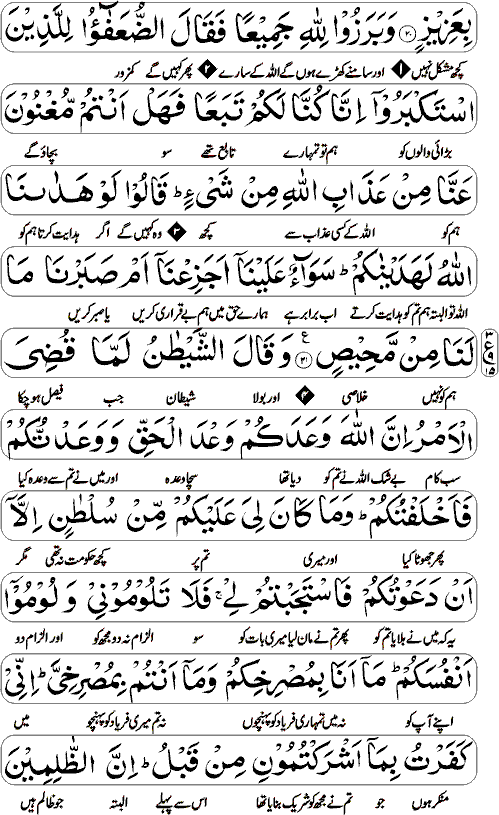 بِعَزِيْزٍ ﴿۲۰﴾ وَبَرَزُوْا لِلّٰهِ جَمِيْعًا فَقَالَ الضُّعَفٰٓؤُا لِلَّذِيْنَ
کچھ مشکل نہیں ۱ اور سامنے کھڑے ہوں گے اللہ کے سارے ۲ پھر کہیں گے کمزور
اسْتَكْبَرُوْٓا اِنَّا كُنَّا لَكُمْ تَبَعًا فَهَلْ اَنْتُمْ مُّغْنُوْنَ
بڑائی والوں کو ہم تو تمہارے تابع تھے سو بچاؤ گے
عَنَّا مِنْ عَذَابِ اللّٰهِ مِنْ شَيْءٍ ؕ قَالُوْا لَوْ هَدٰىنَا
ہم کو اللہ کے کسی عذاب سے کچھ ۳ وہ کہیں گے اگر ہدایت کرتا ہم کو
اللّٰهُ لَهَدَيْنٰكُمْ ؕ سَوَآءٌ عَلَيْنَآ اَجَزِعْنَآ اَمْ صَبَرْنَا مَا
اللہ تو البتہ ہم تم کو ہدایت کرتے اب برابر ہے ہمارے حق میں ہم بے قراری کریں یا صبر کریں
لَنَا مِنْ مَّحِيْصٍ ﴿۲۱﴾ ع وَقَالَ الشَّيْطٰنُ لَمَّا قُضِيَ
۳ ع ۹ ۱۵
ہم کو نہیں خلاصی ۴ اور بولا شیطان جب فیصل ہو چکا
الْاَمْرُ اِنَّ اللّٰهَ وَعَدَكُمْ وَعْدَ الْحَقِّ وَوَعَدْتُّكُمْ
سب کام بے شک اللہ نے تم کو دیا تھا سچا وعدہ اور میں نے تم سے وعدہ کیا
فَاَخْلَفْتُكُمْ ؕ وَمَا كَانَ لِيَ عَلَيْكُمْ مِّنْ سُلْطٰنٍ اِلَّآ
پھر جھوٹا کیا اور میری تم پر کچھ حکومت نہ تھی مگر
اَنْ دَعَوْتُكُمْ فَاسْتَجَبْتُمْ لِيْ ۚ فَلَا تَلُوْمُوْنِيْ وَلُوْمُوْٓا
یہ کہ میں نے بلایا تم کو پھر تم نے مان لیا میری بات کو سو الزام نہ دو مجھ کو اور الزام دو
اَنْفُسَكُمْ ؕ مَآ اَنَا بِمُصْرِخِكُمْ وَمَآ اَنْتُمْ بِمُصْرِخِيَّ ؕ اِنِّيْ
اپنے آپ کو نہ میں تمہاری فریاد کو پہنچوں نہ تم میری فریاد کو پہنچو میں
كَفَرْتُ بِمَآ اَشْرَكْتُمُوْنِ مِنْ قَبْلُ ؕ اِنَّ الظّٰلِمِيْنَ
منکر ہوں جو تم نے مجھ کو شریک بنایا تھا اس سے پہلے البتہ جو ظالم ہیں